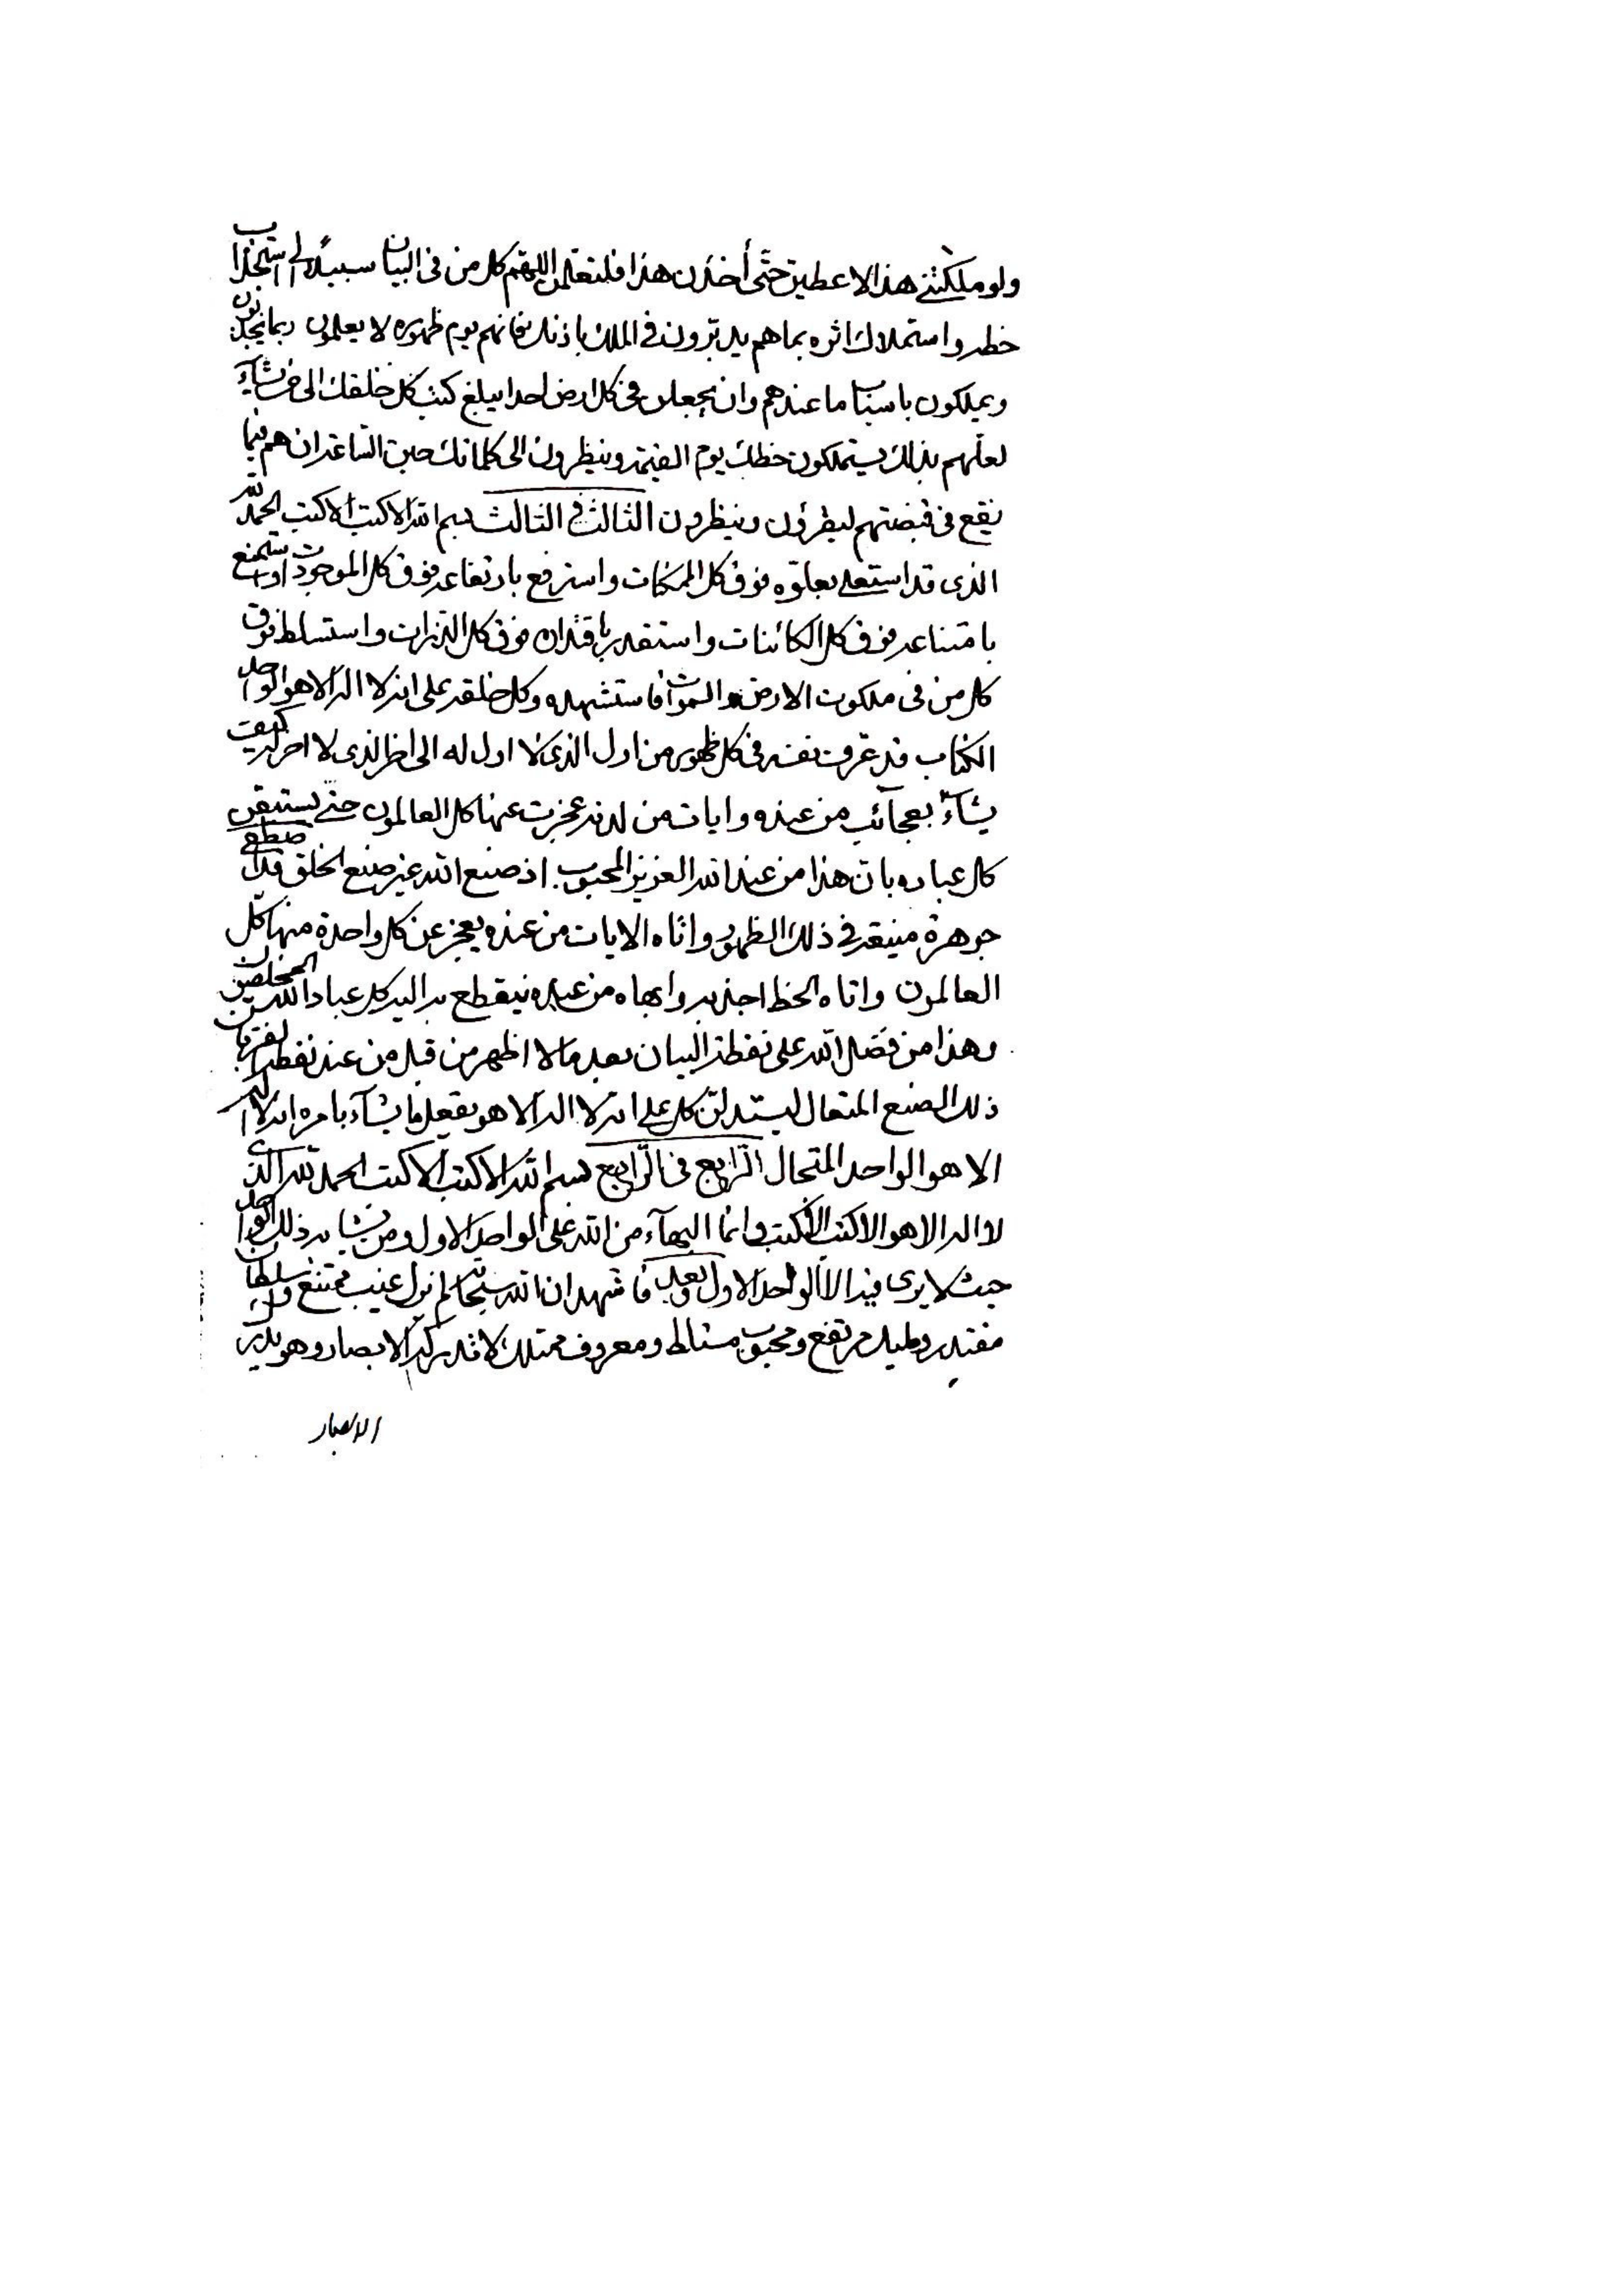 ولو ملكتني هذا لاعطين حتى أخذن هذا فلتعلمن اللهم كل من في البيان سبيلا الى استجذاب
خطه واستملاك اثره بما هم يدبرون في الملك باذنك فانهم يوم ظهوره لا يعلمون ربما يجذبون
ويملكون باسباب ما عندهم وان يجعلن في كل ارض احدا يبلغ كتب كل خلقك الى من تشاء
لعلهم بذلك يستملكون خطك يوم القيمة وينظرون الى كلماتك حين الساعة ان هم فيما
يقع في قبضتهم ليقرؤن وينظرون الثالث في الثالث بسم الله الاكتب الاكتب الحمد لله
الذي قد استعلى بعلوه فوق كل الممكنات واسترفع بارتفاعه فوق كل الموجودات واستمنع
بامتناعه فوق كل الكائنات واستقدر باقتداره فوق كل الذرات واستسلط فوق
كل من في ملكوت الارض والسموات فاستشهده وكل خلقه على انه لا اله الا هو الواحد
الكتاب قد عرف نفسه في كل ظهور من اول الذي لا اول له الى اخر الذي لا اخر له كيف
يشآء بعجآئب من عنده وايات من لدنه عجزت عنها كل العالمون حتى يستيقن
كل عباده بان هذا من عند الله العزيز المحبوب اذ صنع الله غير صنع الخلق قد اصطفى
جوهرة منيعة في ذلك الظهور واتاه الايات من عنده يعجز عن كل واحدة منها كل
العالمون واتاه الخط اجذبه وابهاه من عنده لينقطع به اليه كل عباد الله المخلصين
وهذا من فضل الله على نقطة البيان بعد ما لا اظهر من قبل من عند نقطة الفرقان
ذلك الصنع المتعال ليستدلن كل على انه لا اله الا هو يفعل ما يشآء بامره انه لا اله
الا هو الواحد المتعال الرابع في الرابع بسم الله الاكتب الاكتب الحمد لله الذي
لا اله الا هو الاكتب الاكتب وانما البهآء من الله على الواحد الاول ومن يشابه ذلك الواحد
حيث لا يرى فيه الا الواحد الاول وبعد فاشهد ان الله سبحانه لم يزل غيب ممتنع وسلطان
مقتدر ومليك مرتفع ومحبوب مستلط ومعروف ممتلك لا تدركه الابصار وهو يدرك
الابصار